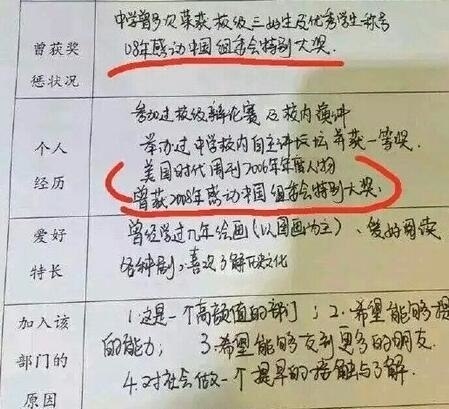 曾获奖
惩状况
中学曾多次荣获校级三好生及优秀学生称号
08年感动中国组委会特别大奖.
个人
经历
参加过校级辩论赛及校内演讲
举办过中学校内自主讲坛并获一等奖.
美国时代周刊2006年年度人物
曾获2008年感动中国组委会特别大奖.
爱好
特长
曾经学过几年绘画(以国画为主)、爱好阅读
各种剧;喜欢了解历史文化
加入该
部门的
原因
1.这是一个高颜值的部门;2.希望能够提
的能力; 3.希望能够交到更多的朋友.
4.对社会做一个提早的接触与了解.